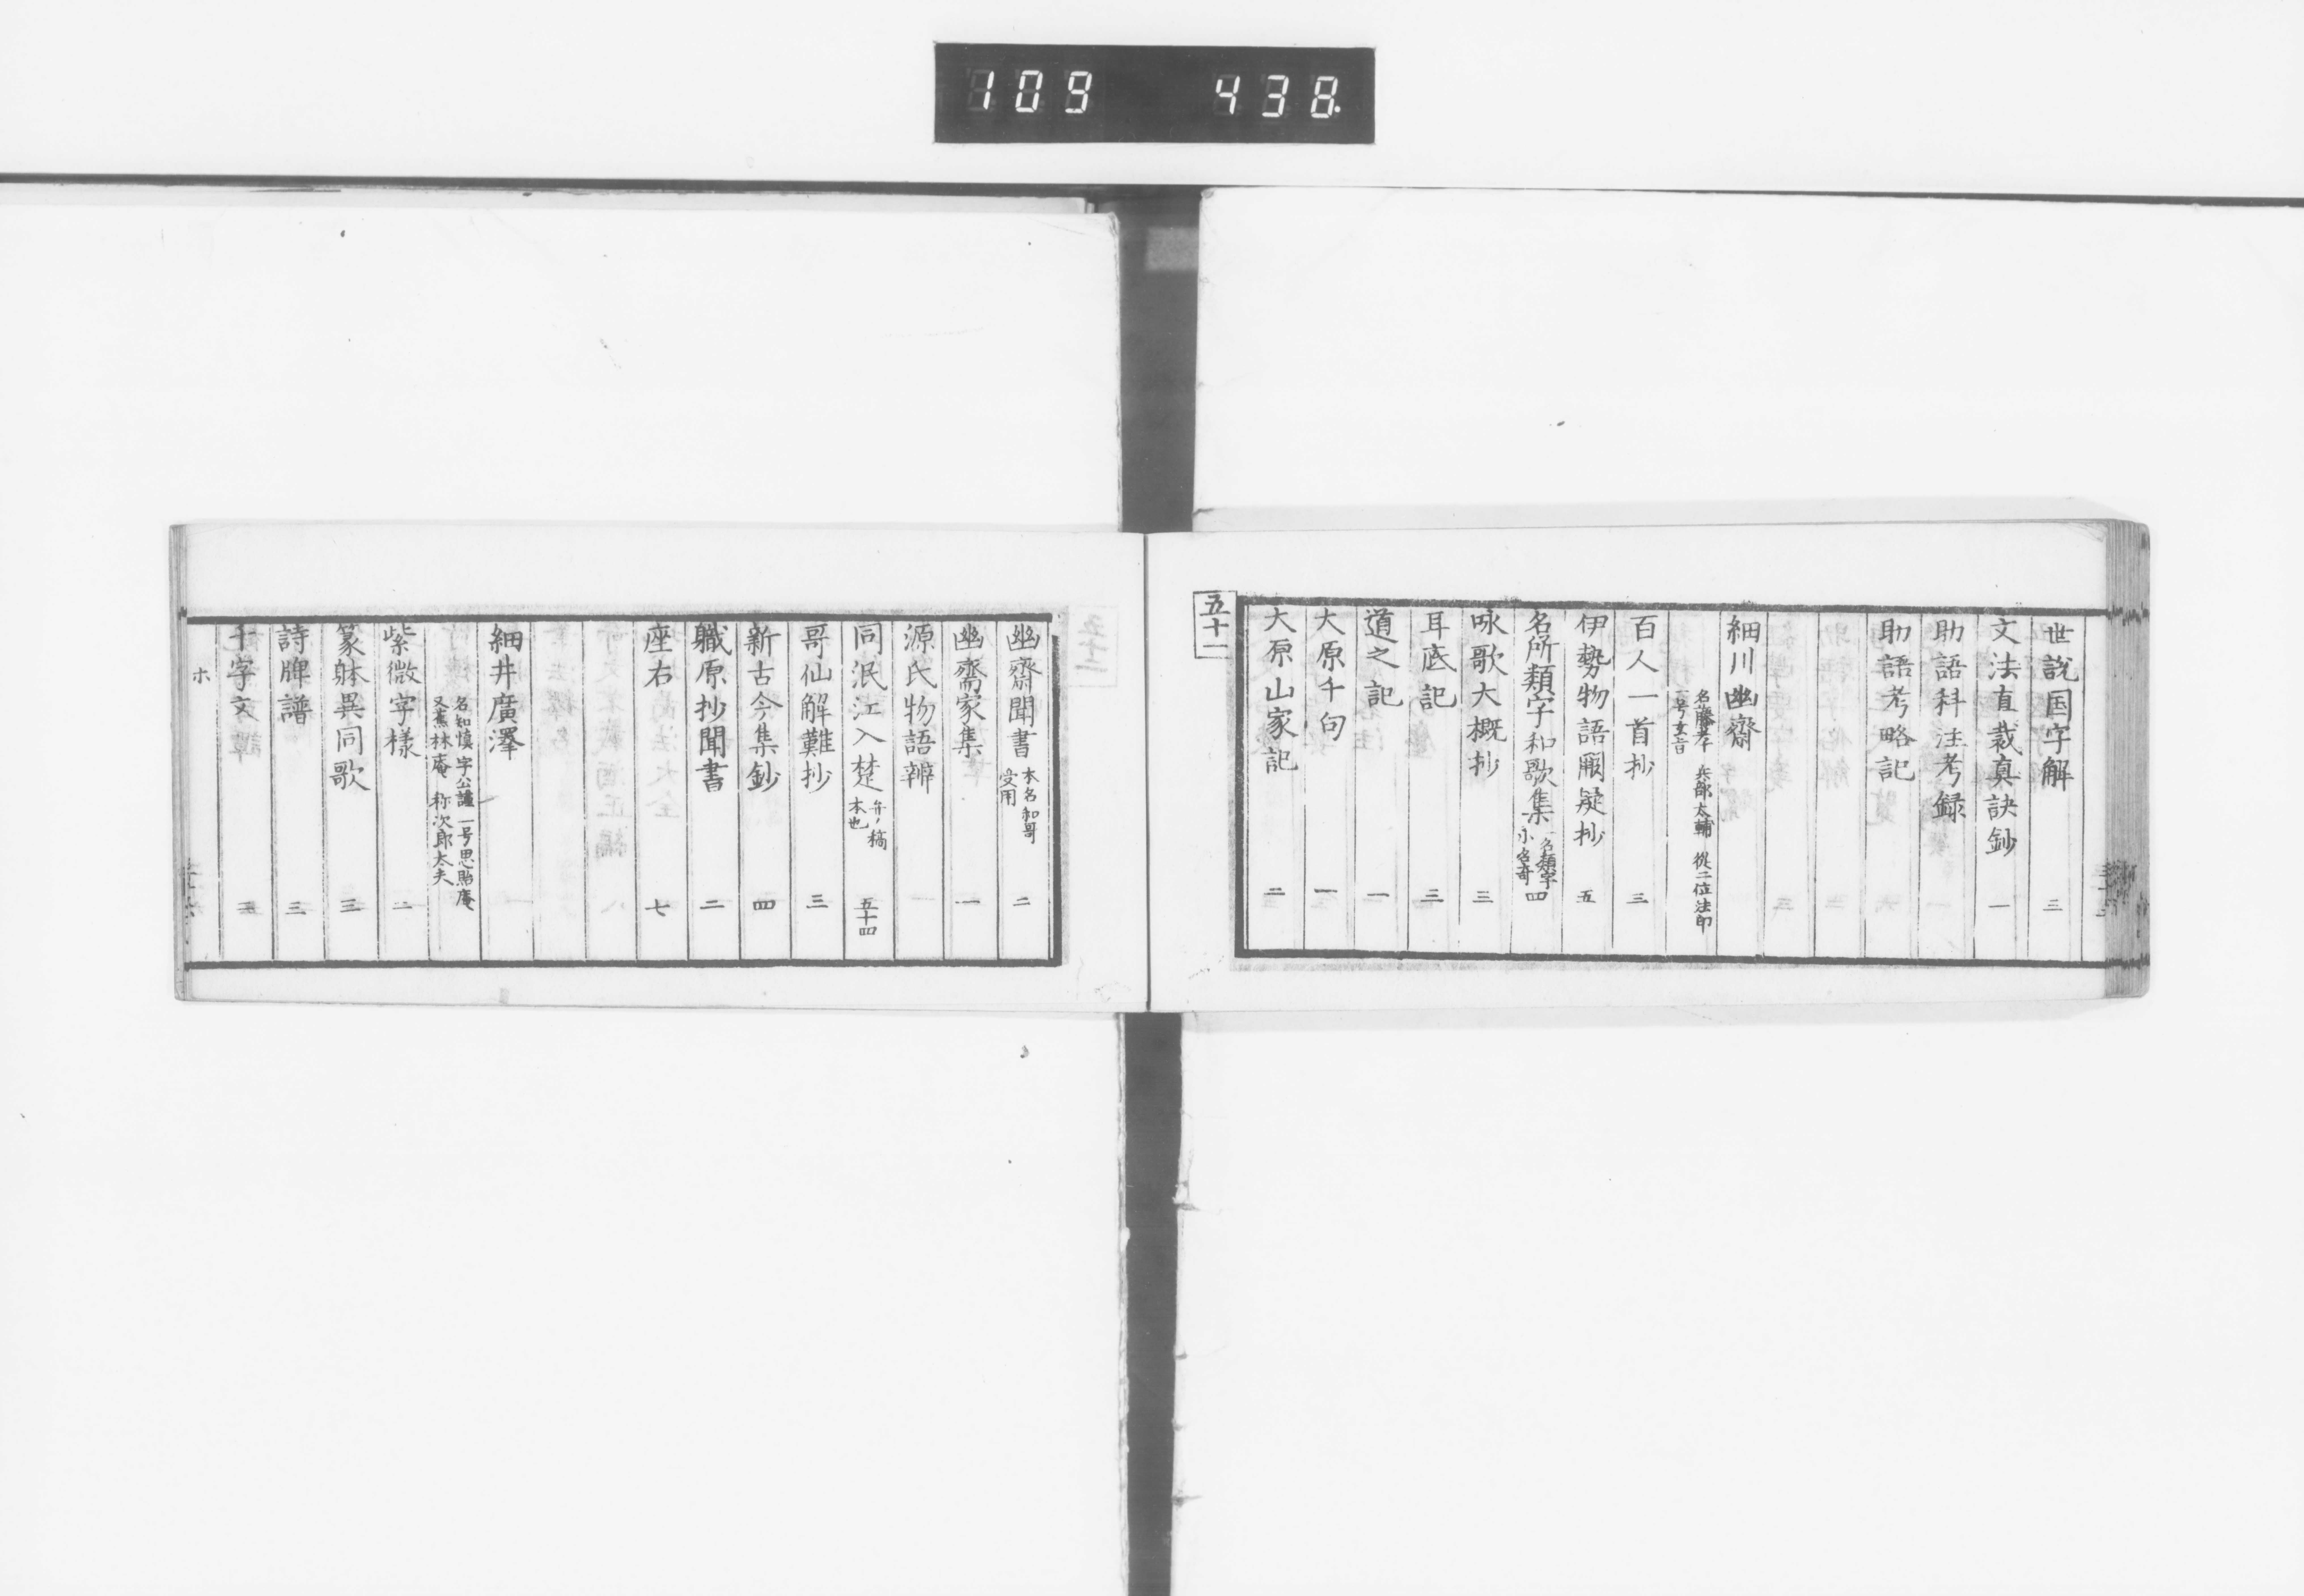 109 438
世説国字解 三
文法直截真訣鈔 一
助語科注考録
助語考略記
細川幽齋
名藤孝 兵部太輔 從二位法印
一号玄旨
百人一首抄 三
伊勢物語闕疑抄 五
名所類字和歌集 四
咏歌大概抄 三
耳底記 三
道之記 一
大原千句 一
大原山家記 二
五十一
幽齋聞書 本名和哥受用 二
幽齋家集 一
源氏物語辨
同泯江入楚 五十四
哥仙解難抄 三
新古今集鈔 四
職原抄聞書 二
座右 七
細井廣澤
名知慎 字公謹 一号思貽庵
又蕉林庵 称次郎太夫
紫微字様 二
篆躰異同歌 三
詩牌譜 三
千字文 三
ホ